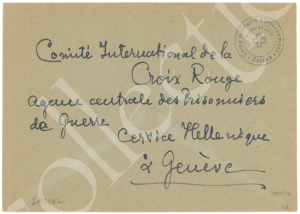 Comité International de la
Croix Rouge
Agence centrale des Prisonniers
de Guerre
Cervice Hellenique
à Genève